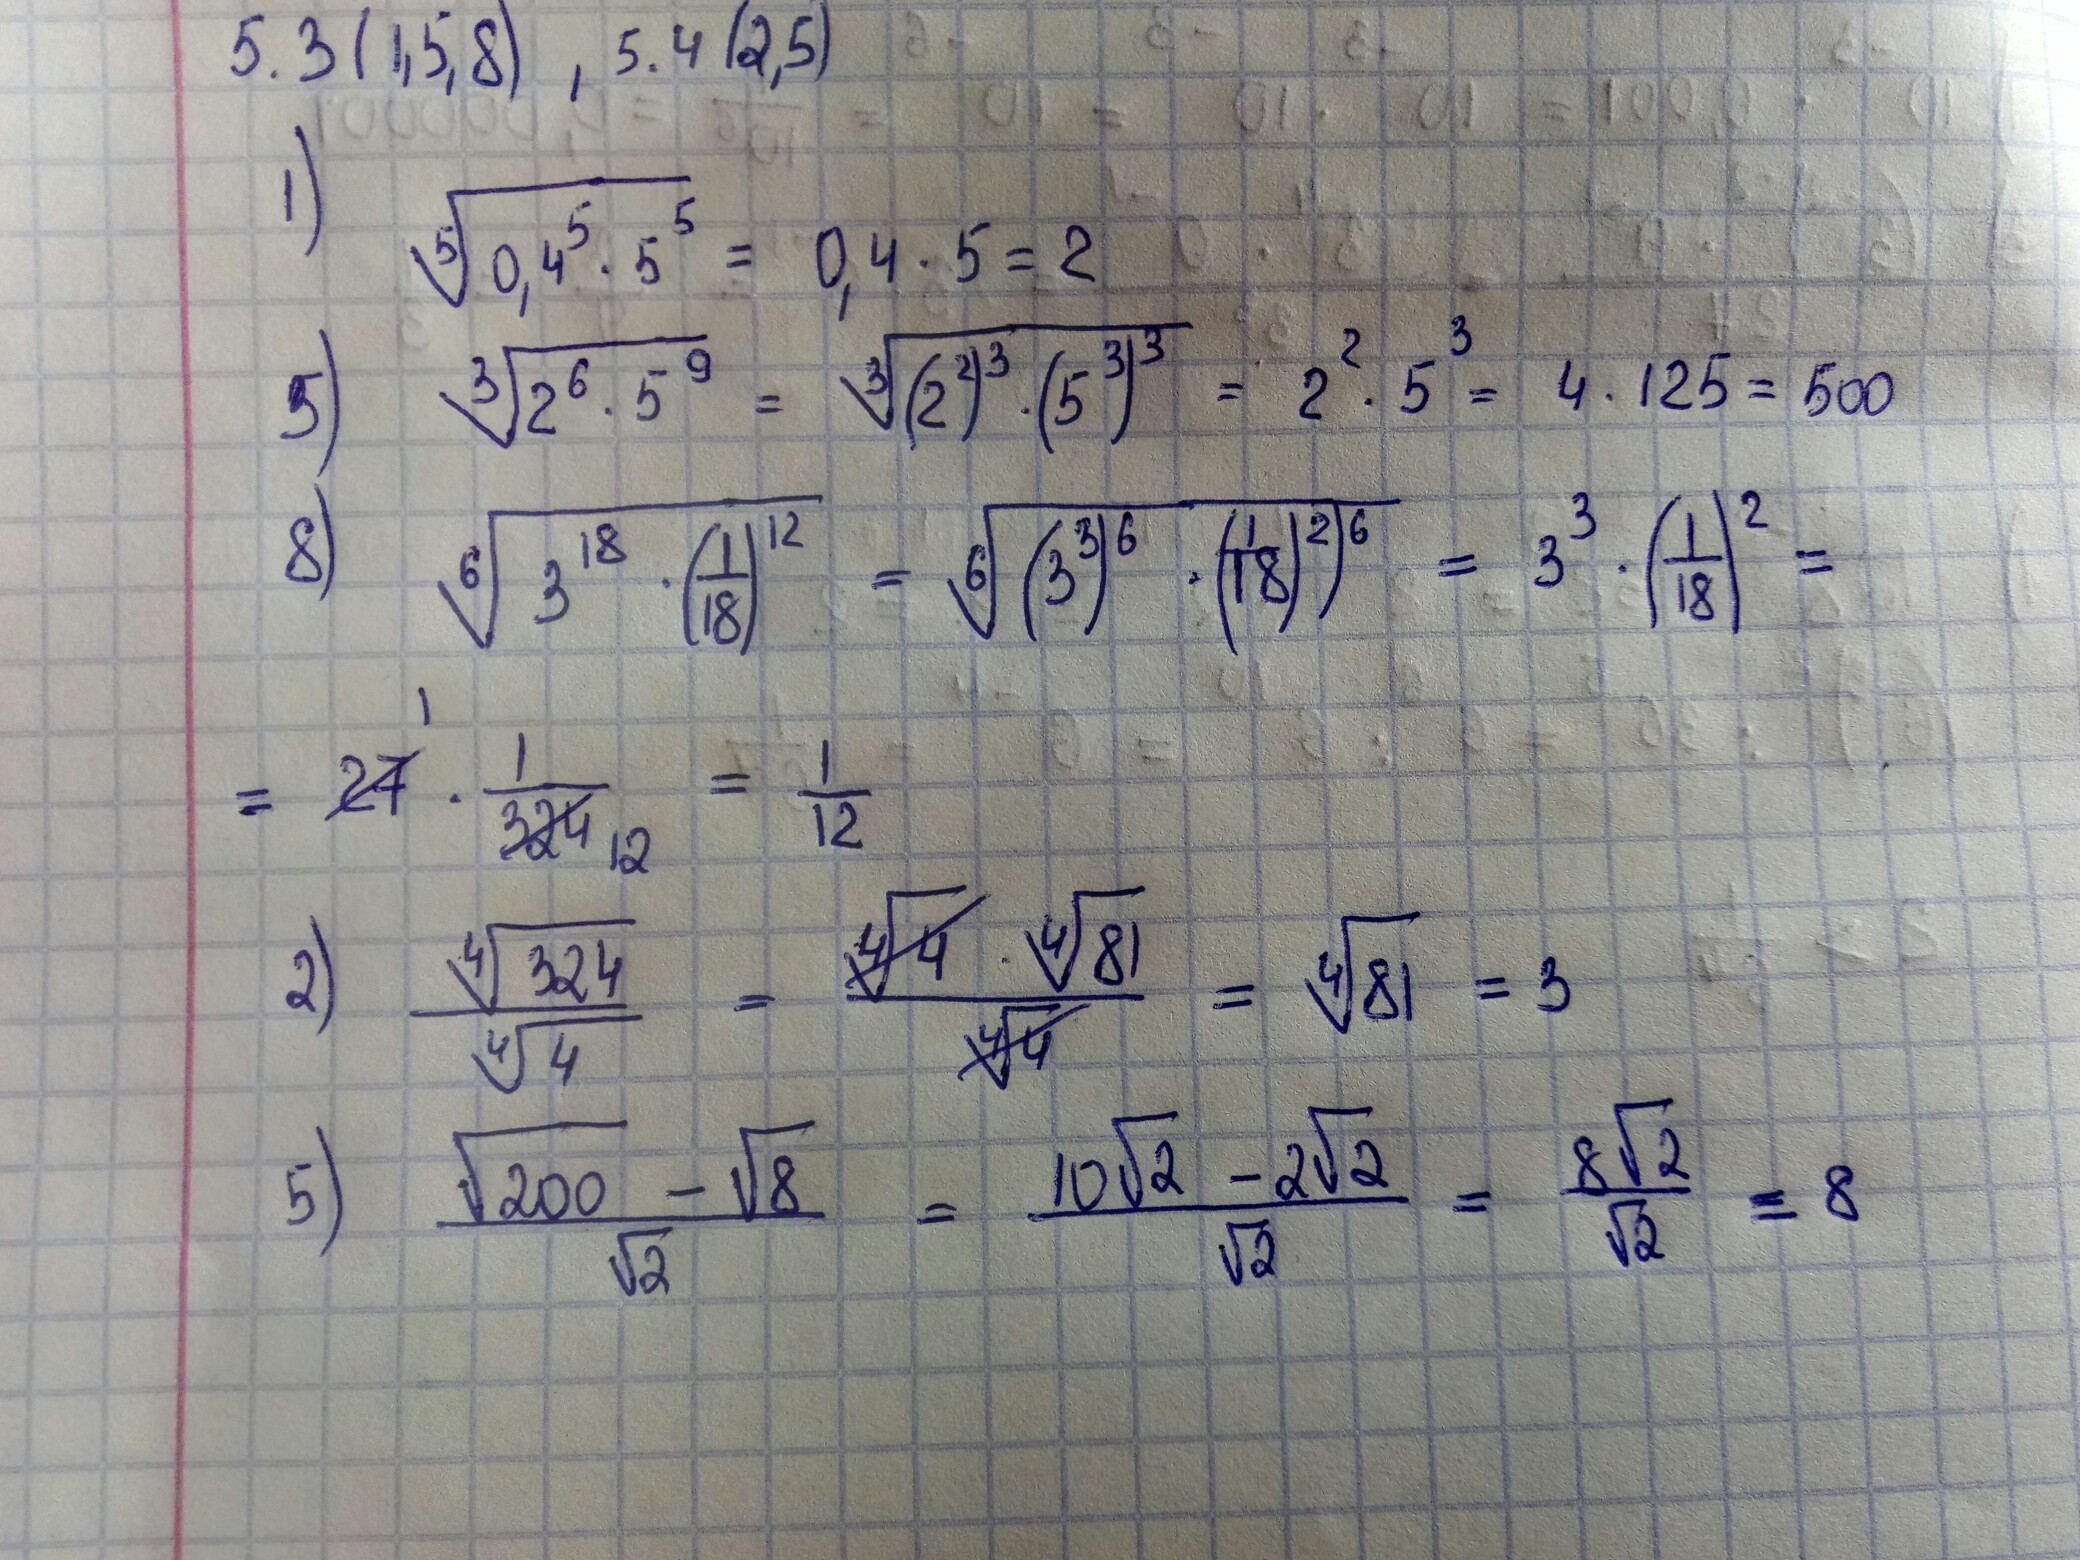 5.3 (1,5,8), 5.4 (2,5)
1) ⁵√(0,4⁵ · 5⁵) = 0,4 · 5 = 2
5) ³√(2⁶ · 5⁹) = ³√((2²)³ · (5³)³) = 2² · 5³ = 4 · 125 = 500
8) ⁶√(3¹⁸ · (1/18)¹²) = ⁶√((3³)⁶ · ((1/18)²)⁶) = 3³ · (1/18)² =
= 27 1 · 1/324 12 = 1/12
2) ⁴√324 / ⁴√4 = (⁴√4 · ⁴√81) / ⁴√4 = ⁴√81 = 3
5) (√200 − √8) / √2 = (10√2 − 2√2) / √2 = 8√2 / √2 = 8